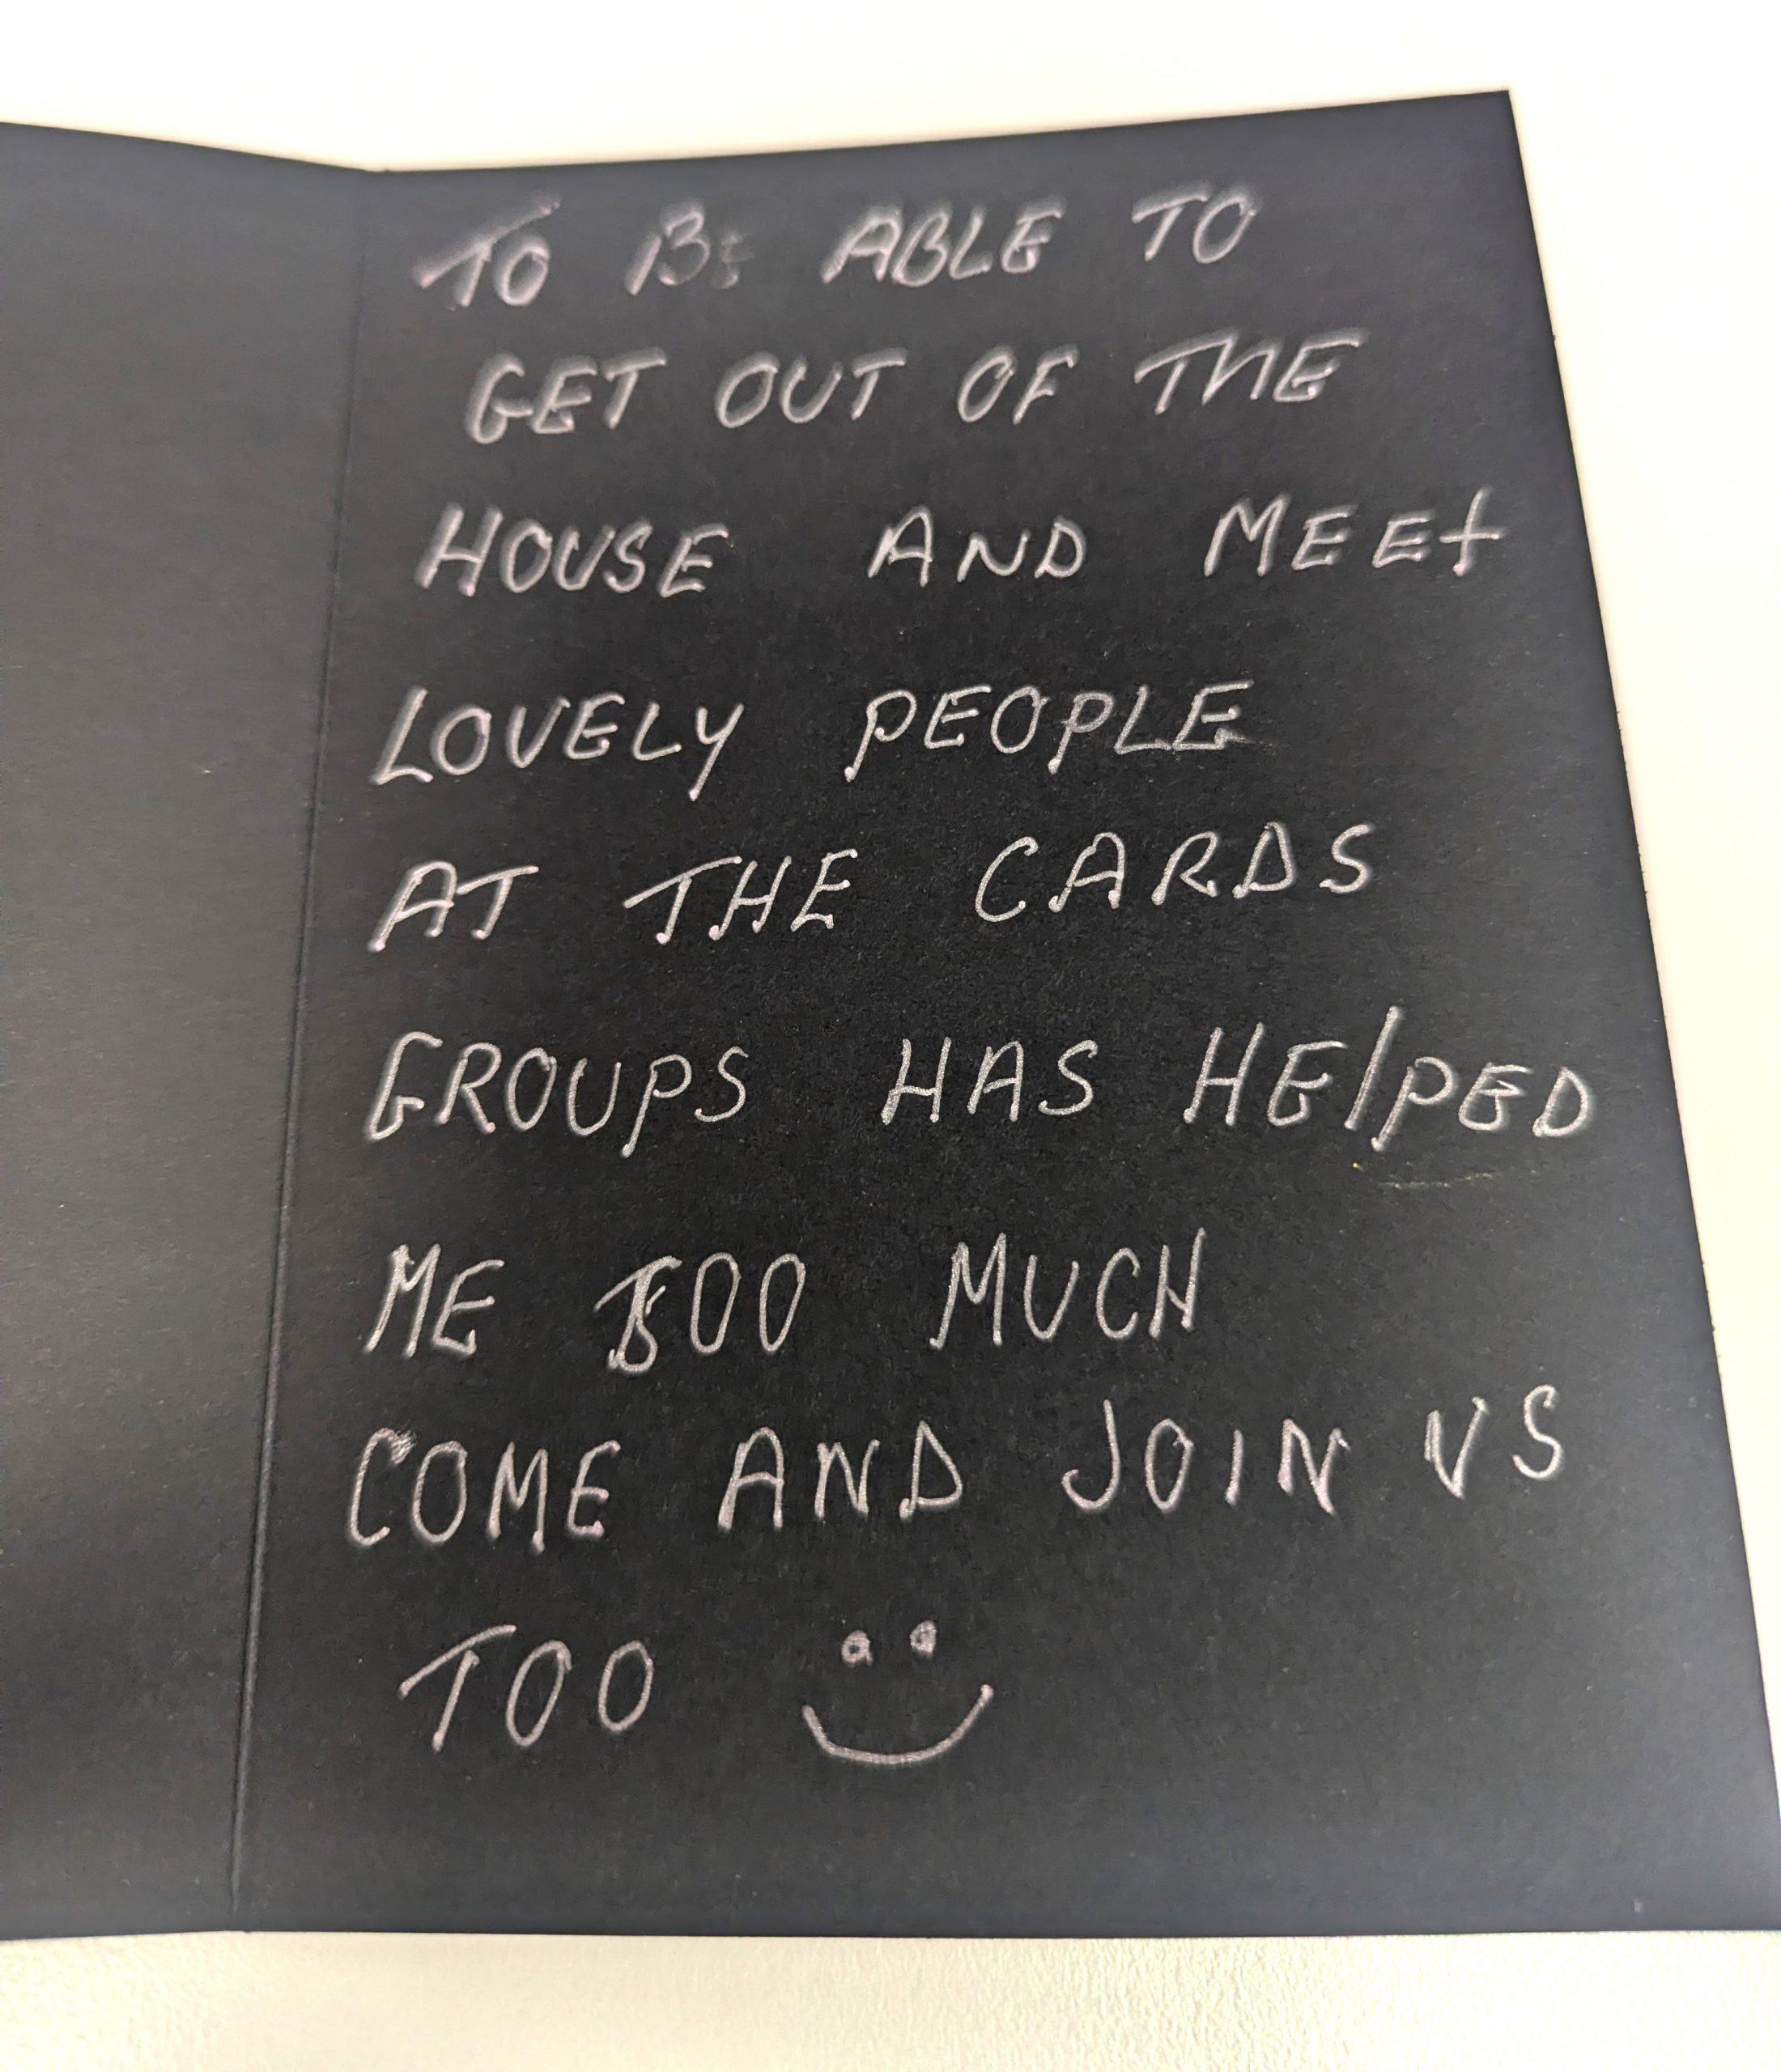 TO BE ABLE TO
GET OUT OF THE
HOUSE AND MEEt
LOVELY PEOPLE
AT THE CARDS
GROUPS HAS HElPED
ME TOO MUCH
COME AND JOIN US
TOO